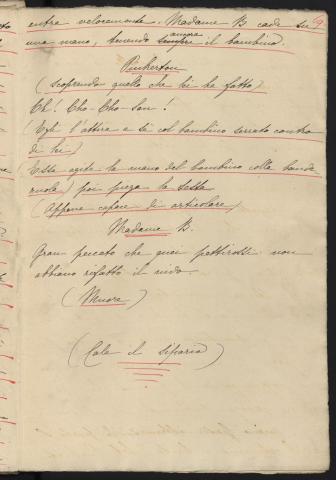 entra velocemente. Madame B. cade su
una mano, tenendo sempre ancora il bambino.
Pinkerton
(scoprendo quello che lei ha fatto)
Oh! Cho-Cho-San!
(Egli l'attira a sè col bambino serrato contro
di lei)
(Essa agita la mano del bambino colla bande
ruola) poi piega la testa
(appena capace di articolare)
Madame B.
Gran peccato che quei pettirossi non
abbiano rifatto il nido.
(Muore)
(Cala il sipario)